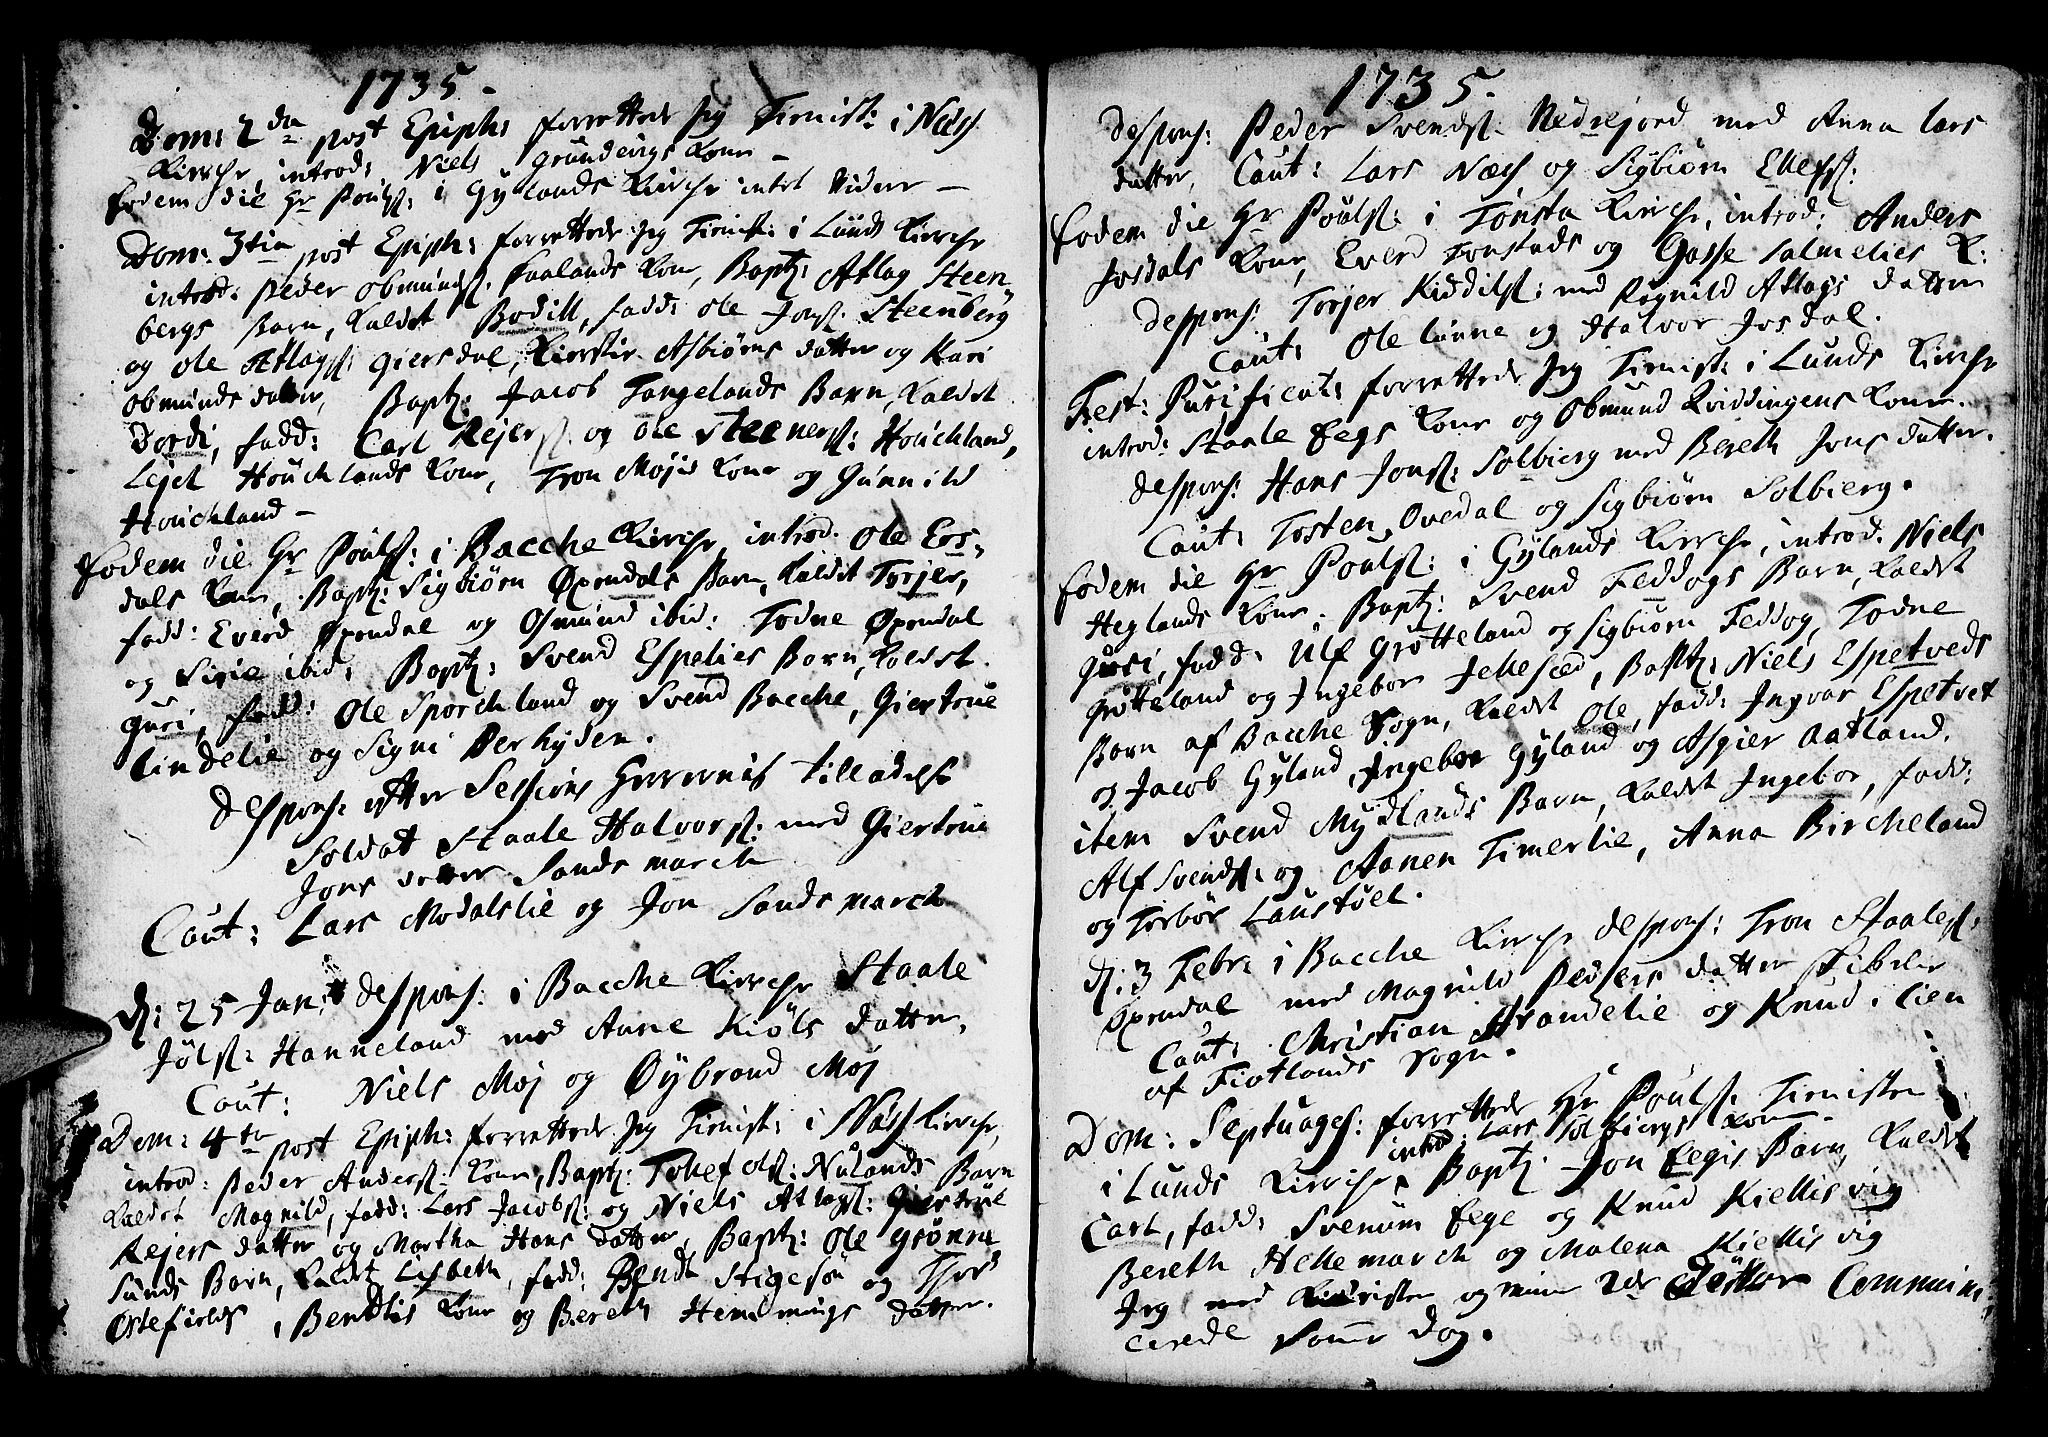 1735.
Dom: 2da post Epiph: forrettede Jeg Tienist: i Næss
Kirche, introd: Niels Grundevigs Kone –
Eodem die Hr Poulß: i Gylands Kirche intet Videre –
Dom: 3tia post Epiph: forrettede Jeg Tienist: i Lunds Kirche
introd: Peder Obmundß: Faalands Kone, Bapt: Atlag Steen
bergs Barn, Kaldet Bodill, fadd: Ole Jonß: Steenberg
og Ole Atlagß: Giersdal, Kirstir Asbiørns datter og Kari
Obmunds datter, Bapt: Jacob Tangelands Barn, Kaldet
Dordi, fadd: Carl Rejerß: og Ole Steenerß: Houchland,
Lejet Houchlands Kone, Tron Mojs Kone og Gunnild
Houchland –
Eodem die Hr Poulß: i Bacche Kirche introd. Ole Ers,
dals Kone, Bapt: Sigbiørn Øxendals Barn, Kaldet Torjer,
fadd: Everd Øxendal og Osmund ibid: Todne Øxendal
og Sirie ibid: Bapt: Svend Espelies Barn, Kaldet
Guri, fadd: Ole Sporchland og Svend Bacche, Giertrue
Lindelie og Signi Berhyden.
Despons: efter Sessions Herrernis tilladelse
Soldat Staale Halvorß: med Giertrue
Jons datter Sandsmarch
Caut: Lars Modalslie og Jon Sandsmarch
d: 25 Jan: despons: i Bacche Kirche Staale
Jølß: Hanneland med Anne Kiøls datter,
Caut: Niels Moj og Øybrand Moj
Dom: 4ta post Epiph: forrettede Jeg Tienist: i Næss Kirche,
introd: Peder Anderß: Kone, Bapt: Tollef Olß: Nulands Barn
Kaldet Magnild, fadd: Lars Jacobß: og Niels Atlagß: Giertrue
Rejers datter og Martha Hans datter, Bapt: Ole Grønne
sunds Barn, Kaldet Lisbeth, fadd: Bendt Stigesøn og Tjerd
Østefields, Bendtis Kone og Bereth Hemmings datter.
1735.
Despons: Peder Svendß: Nedrejord med Anna Lars
datter, Caut: Lars Næss og Sigbiørn Ellefß:
Eodem die Hr Poulß: i Tonsta Kirche, introd: Anders
Josdals Kone, Everd Tonstads og Gosse Salmelies K:
Despons: Torjer Kiddilß: med Rognild Atlags datter
Caut: Ole Linne og Halvor Josdal.
Fest: Purificat: forrettede Jeg Tienist: i Lunds Kirche
introd: Staale Eegs Kone og Obmund Kviddingens Kone.
Despons: Hans Jonß: Solbierg med Bereth Jons datter.
Caut: Tosten Ovedal og Sigbiørn Solbierg.
Eodem die Hr Poulß: i Gylands Kirche, introd. Niels
Heglands Kone, Bapt: Svend Feddogs Barn, Kaldet
Guri, fadd: Ulf Grøtteland og Sigbiørn Feddog, Todne
Grøtteland og Ingebor Jellesæd, Bapt: Niels Espetveds
Barn af Bacche Sogn, Kaldet Ole, fadd: Ingvar Espetvet
og Jacob Gyland, Ingebor Gyland og Asgier Aatland.
item Svend Mydlands Barn, Kaldet Ingebor, fadd:
Alf Svendß: og Aanen Timerlie, Anna Bircheland
og Torbør Laustøel.
d: 3 Febr: i Bacche Kirche despons: Tron Staaleß:
Øxendal med Magnild Peders datter Fibelie
Caut: Christian Strandelie og Knud Lien
af Fiotlands Sogn.
Dom: Septuages: forrettede Hr Poulß: Tienisten
introd: Lars Solbiergs Kone
i Lunds Kirche, Bapt: Jon Eegis Barn, Kaldet
Carl, fadd: Svenum Eege og Knud Kiellisvig
Bereth Hellemarch og Malena Kiellisvig
Jeg med Kiæristen og mine 2de Døttor Commini,
cerede samme dag.